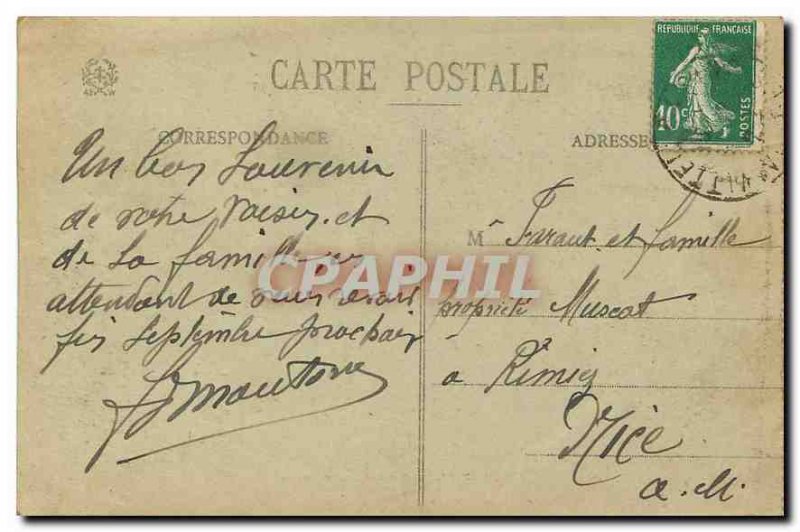 CARTE POSTALE
CORRESPONDANCE
ADRESSE
REPUBLIQUE FRANÇAISE
10c
POSTES
Un bon Souvenir
de votre Voisin et
de la famille en
attendant de vous revoir
fin Septembre prochain
Mr Faraut et famille
propriété Muscat
à
Nice
A. M.
CPAPHIL